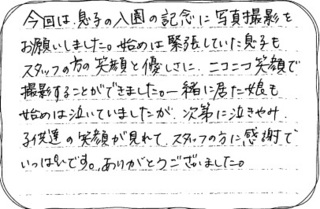 今回は、息子の入園の記念に写真撮影を
お願いしました。始めは緊張していた息子も
スタッフの方の笑顔と優しさに、ニコニコ笑顔で
撮影することができました。一緒に居た娘も
始めは泣いていましたが、次第に泣きやみ
子供達の笑顔が見れて、スタッフの方に感謝で
いっぱいです。ありがとうございました。